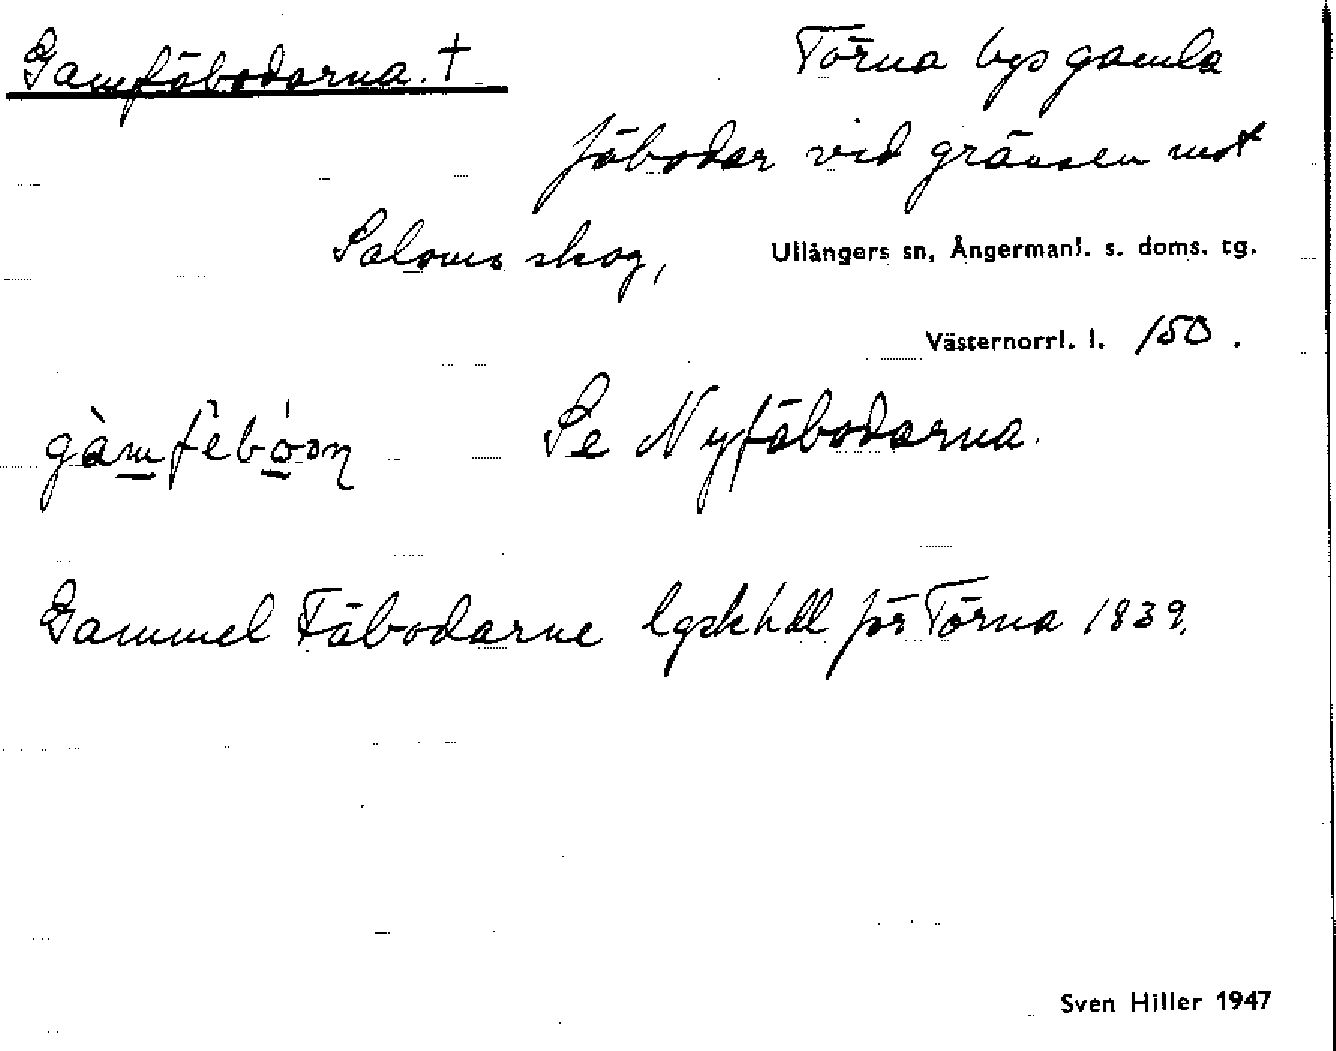 Gamfäbodarna. † Törna bys gamla
fäbodar vid gränsen mot
Saloms skog, Ullångers sn, Ångermanl. s. doms. tg.
Västernorrl. l. 150.
gàmfêbóọn Se Nyfäbodarna.
Gammel Fäbodarne lgskhdl för Törna 1839.
Sven Hiller 1947